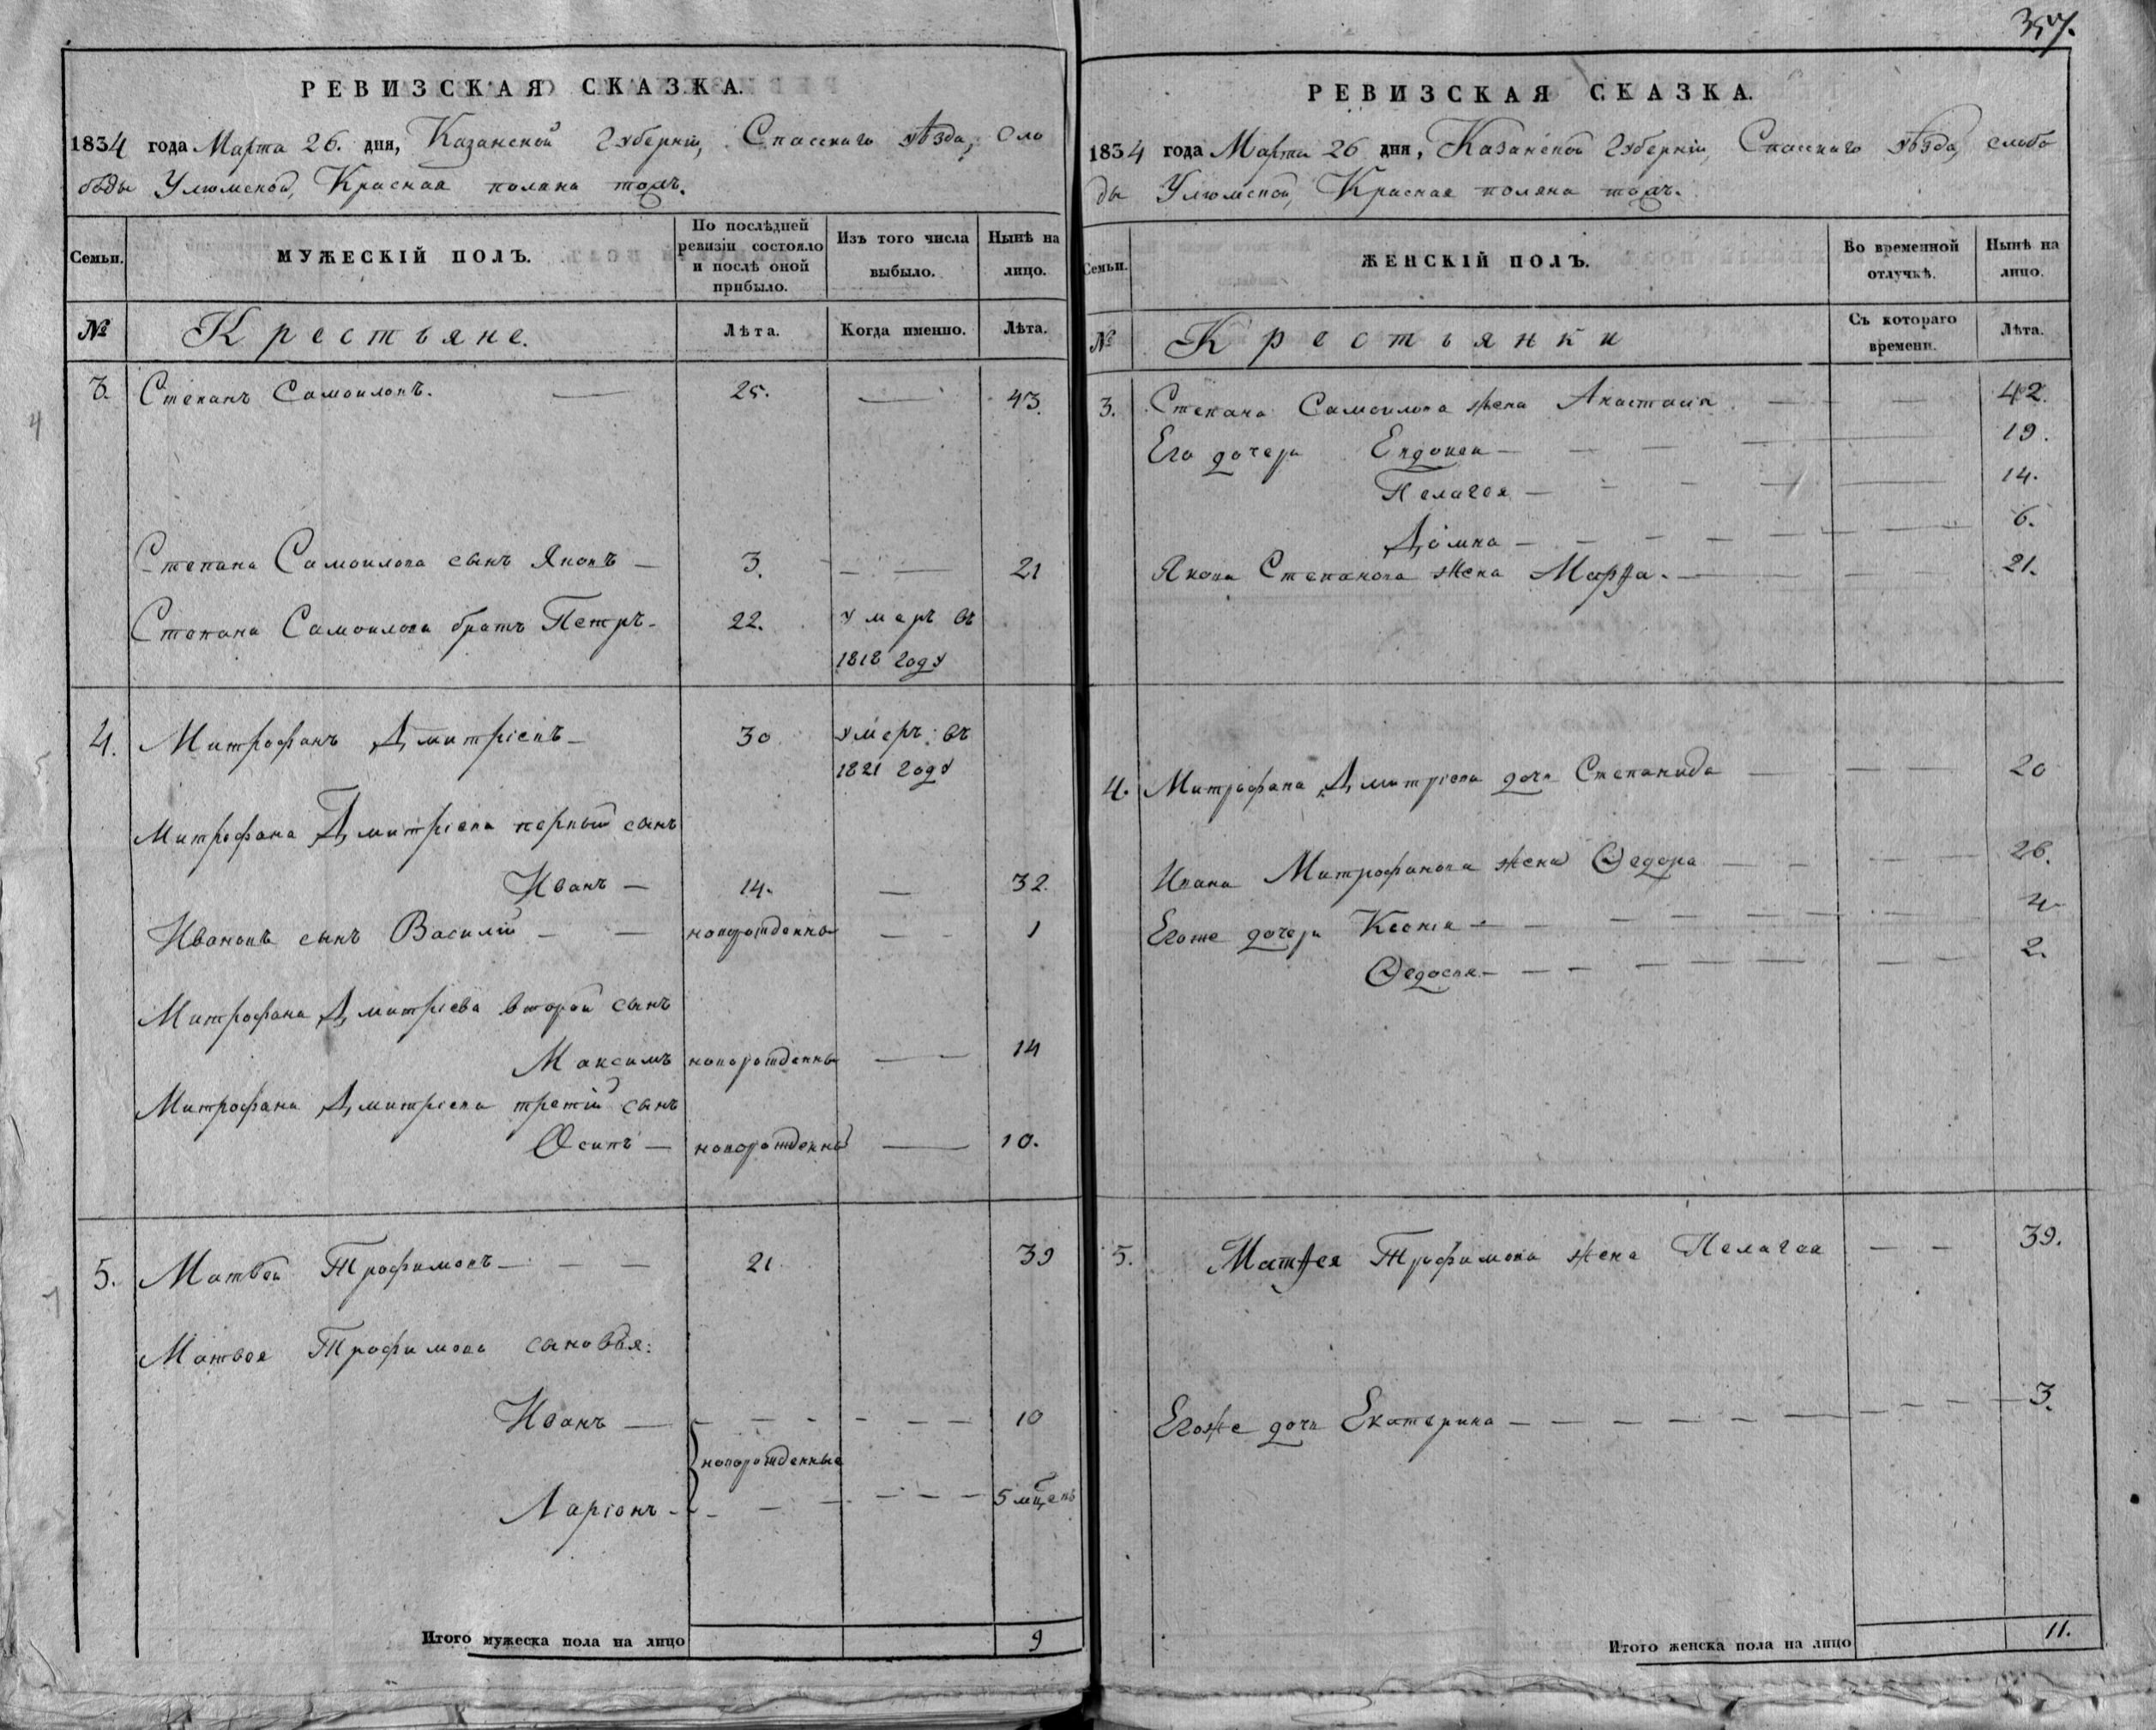 357.
РЕВИЗСКАЯ СКАЗКА.
1834 года Марта 26. дня, Казанской Губерніи, Спасскаго уѣзда, Сло
боды Улюмской, Красная поляна тожъ.
Семьи.
МУЖЕСКІЙ ПОЛЪ.
По послѣдней ревизіи состояло и послѣ оной прибыло.
Изъ того числа выбыло.
Нынѣ на лицо.
№
Крестьяне.
Лѣта.
Когда именно.
Лѣта.
3. Степанъ Самоиловъ. — 25. — 43.
4
Степана Самоилова сынъ Яковъ — 3. — — 21
Степана Самоилова братъ Петръ — 22. умеръ въ
1818 году
4. Митрофанъ Дмитріевъ — 30 умеръ въ
1821 году
5
Митрофана Дмитріева первый сынъ
Иванъ — 14. — 32.
Ивановъ сынъ Василій — — новорожденный — — 1
Митрофана Дмитріева второй сынъ
Максимъ новорожденный — — 14
Митрофана Дмитріева третій сынъ
Осипъ — новорожденный — 10.
5. Матвей Трофимовъ — — — 21 39
Матвея Трофимова сыновья:
Иванъ — — — — — — — 10
новорожденные
Ларіонъ — — — — — — — 5 мцевъ
Итого мужеска пола на лицо 9
РЕВИЗСКАЯ СКАЗКА.
1834 года Марта 26 дня, Казанской Губерніи, Спасскаго уѣзда, слобо
ды Улюмской, Красная поляна тожъ.
Семьи.
ЖЕНСКІЙ ПОЛЪ.
Во временной отлучкѣ.
Нынѣ на лицо.
№
Крестьянки
Съ котораго времени.
Лѣта.
3. Степана Самоилова жена Анастасия — — — — 42.
Его дочери Евдокея — — — — 19.
Пелагея — — — — 14.
Домна — — — — — — 6.
Якова Степанова жена Марѳа. — — — — 21.
4. Митрофана Дмитріева дочь Степанида — — — 20
Ивана Митрофанова жена Ѳедора — — — — 26.
Егоже дочери Ксенія — — — — — — 4
Ѳедосья — — — — — — — — 2.
5. Матѳея Трофимова жена Пелагея — — 39.
Егоже дочь Екатерина — — — — — — — — 3.
Итого женска пола на лицо 11.